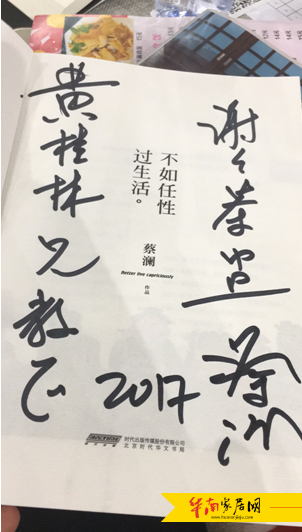 黄桂林兄教正
不如任性
过生活。
蔡澜
Better live capriciously
作品
谢々茶盅
蔡澜
2017
时代出版传媒股份有限公司
北京时代华文书局
华南家居网